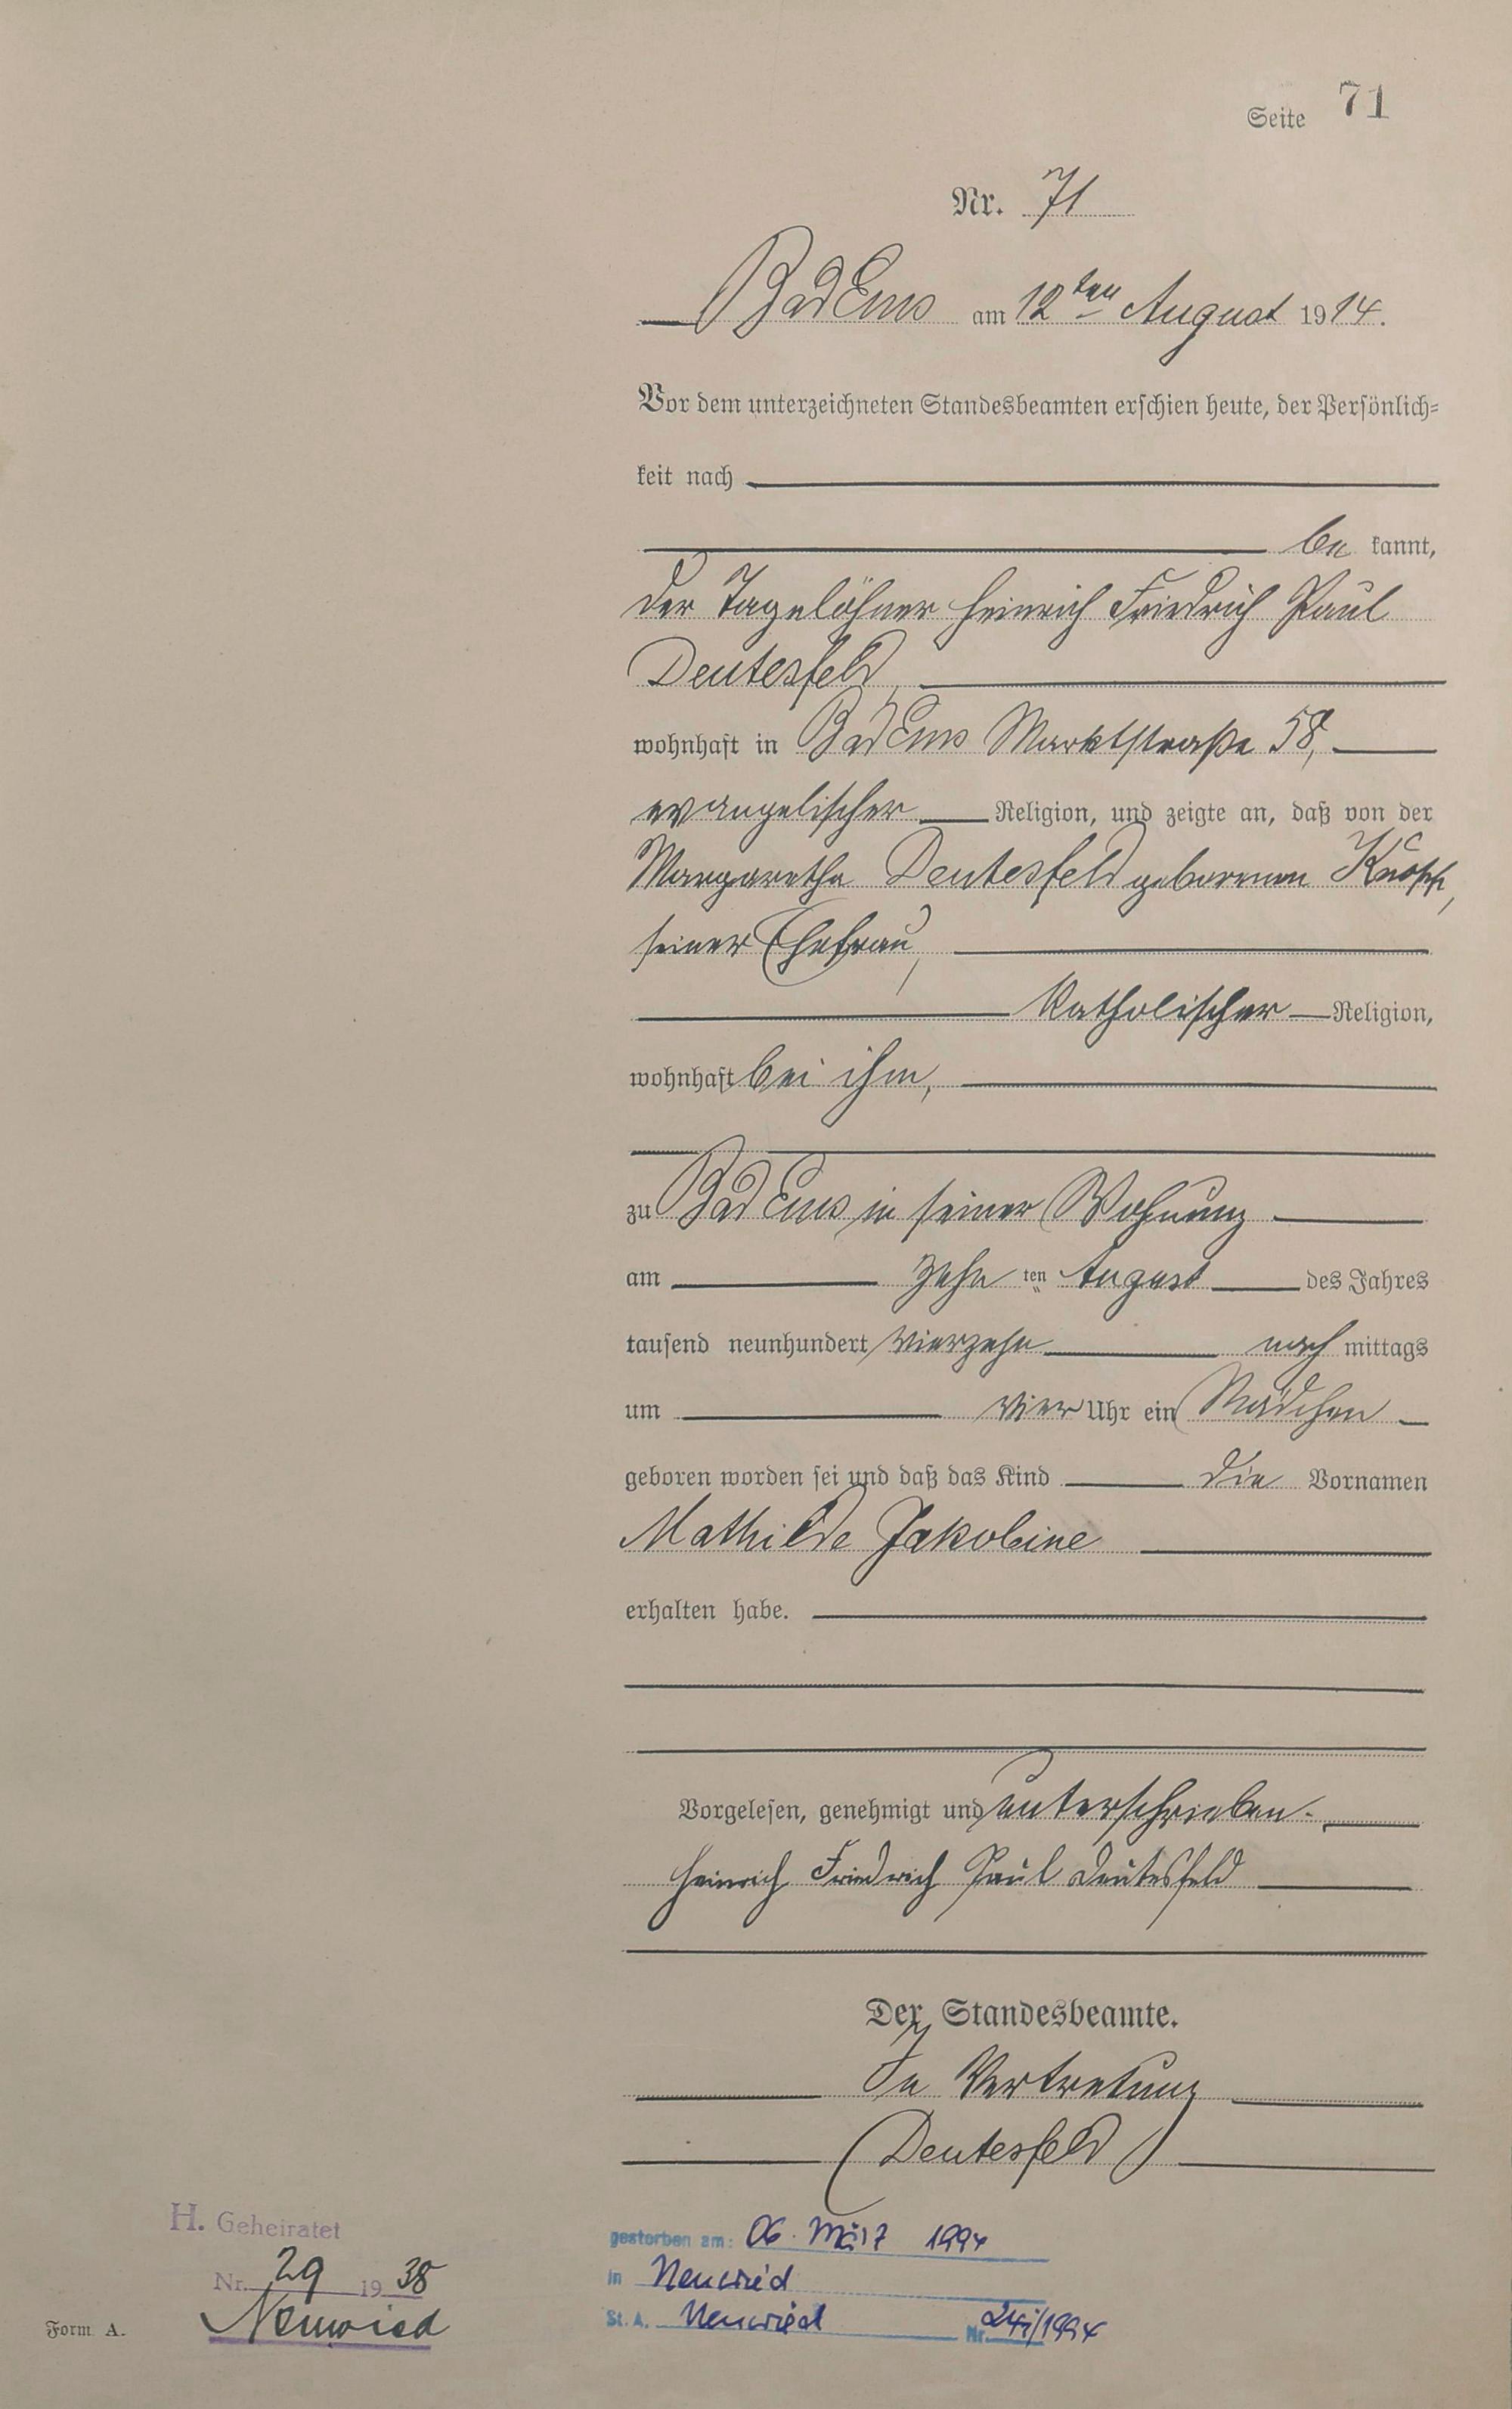 Seite 71
Nr. 71
Bad Ems am 12ten August 1914.
Vor dem unterzeichneten Standesbeamten erschien heute, der Persönlich=
keit nach
be kannt,
der Tagelöhner Heinrich Friedrich Paul
Deutesfeld,
wohnhaft in Bad Ems Marktstraße 58,
evangelischer Religion, und zeigte an, daß von der
Margaretha Deutesfeld geborenen
seiner Ehefrau,
katholischer Religion,
wohnhaft bei ihm,
zu Bad Ems in seiner Wohnung
am zehn ten August des Jahres
tausend neunhundert vierzehn nach mittags
um vier Uhr ein Mädchen
geboren worden sei und daß das Kind die Vornamen
Mathilde Jakobine
erhalten habe.
Vorgelesen, genehmigt und unterschrieben.
Heinrich Friedrich Paul Deutesfeld
Der Standesbeamte.
In Vertretung
(Deutesfeld)
H. Geheiratet
Nr. 29 1938
Neuwied
Form A.
gestorben am: 06. März 1994
in Neuwied
St. A. Neuwied Nr. /1994